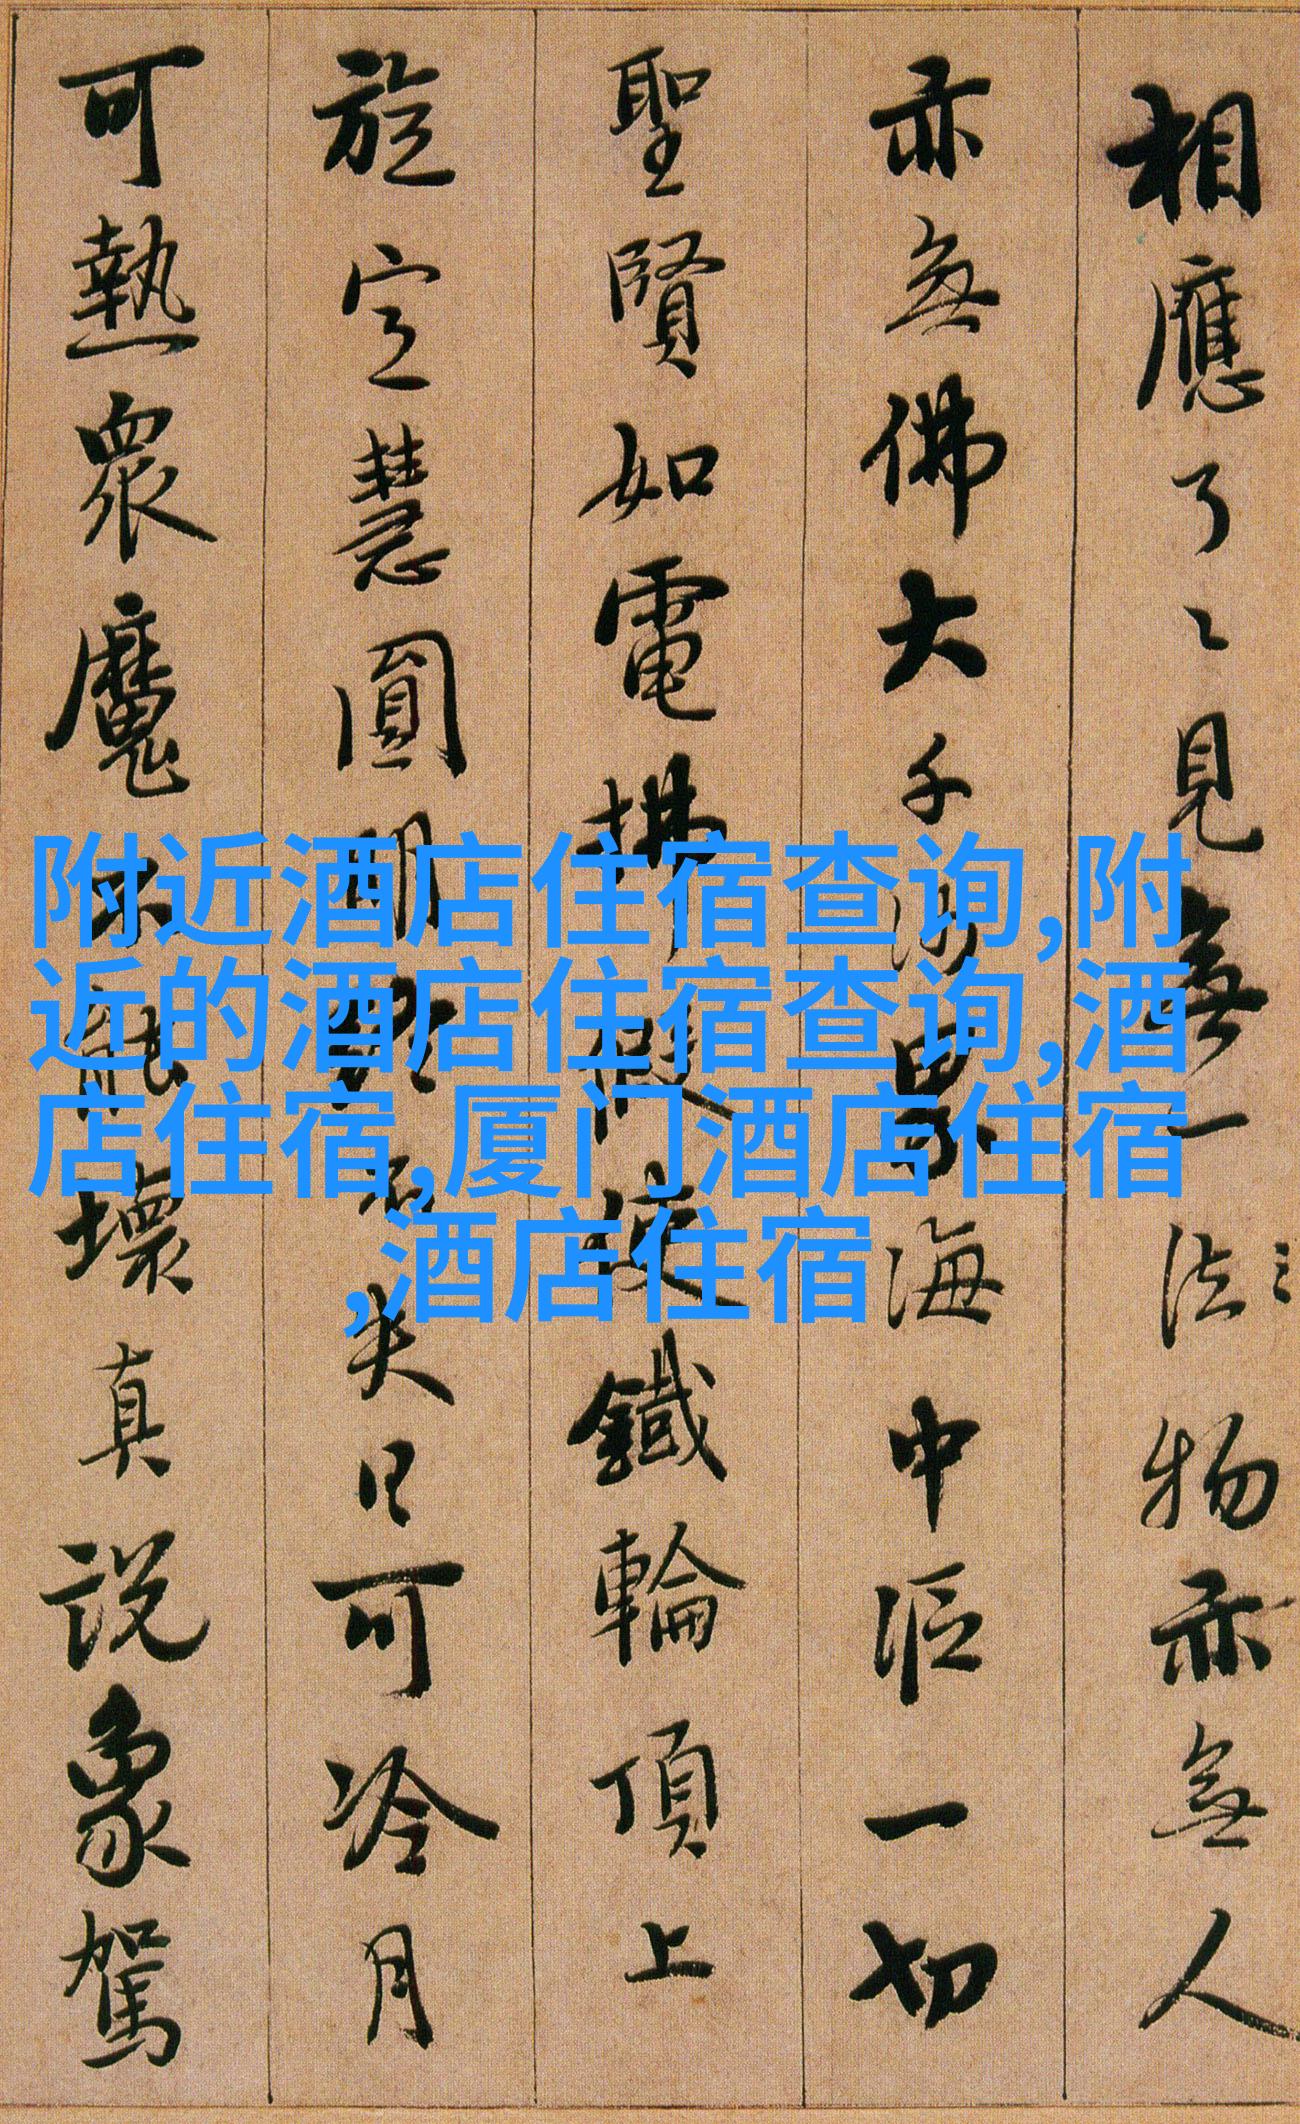 相應了〻見無一法物亦無人
亦無佛大千沙界海中漚一切
聖賢如電拂假使鐵輪頂上
旋定慧圓明終不失日可冷月
可熱眾魔不能壞真說象駕
附近酒店住宿查询,附
近的酒店住宿查询,酒
店住宿,厦门酒店住宿
,酒店住宿